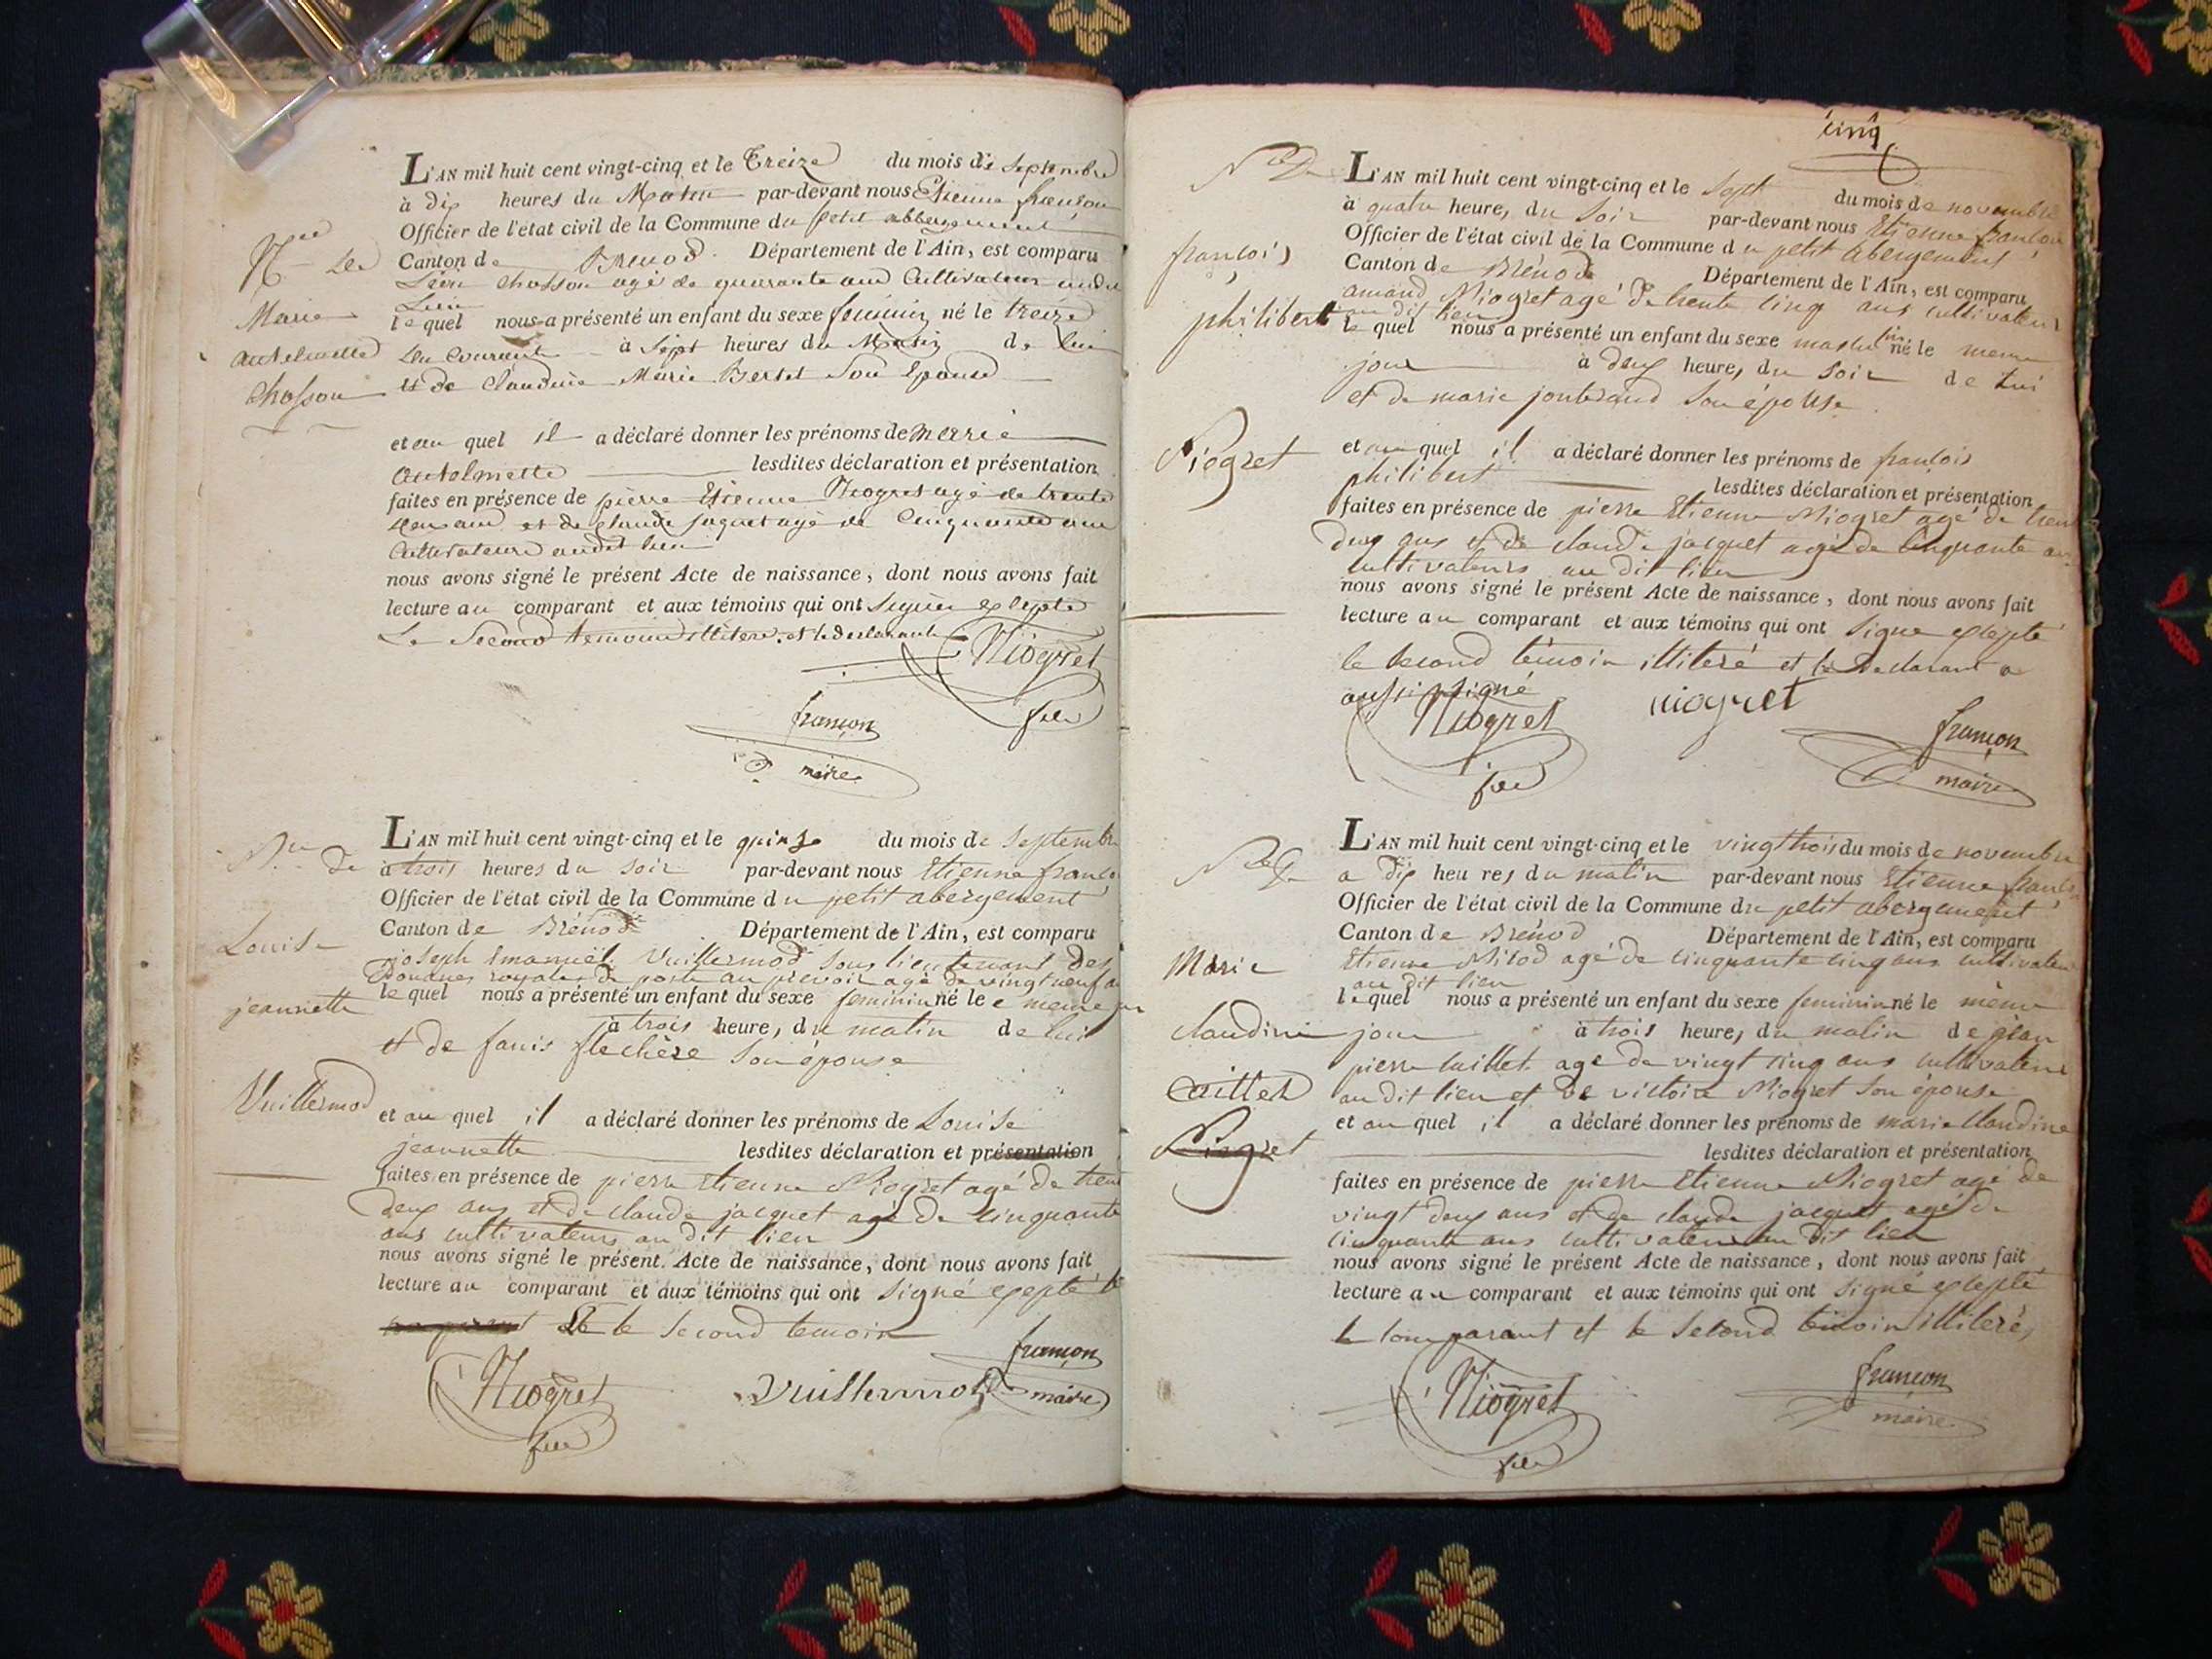 L'AN mil huit cent vingt-cinq et le Treize du mois de Septembre
à dix heures du Matin par-devant nous Etienne françon
Officier de l'état civil de la Commune du petit abbergement
Canton de Brenod Département de l'Ain, est comparu
chosson agé de quarante ans Cultivateur
le quel nous a présenté un enfant du sexe feminin né le treize
du Courant à Sept heures du Matin de lui
et de Claudine Marie Bertet Son Epouse
et au quel il a déclaré donner les prénoms de Marie
Antelmette lesdites déclaration et présentation
faites en présence de pierre Etienne Niogret agé de trente
deux ans et de Claude jaquet agé de Cinquante ans
Cultivateurs audit lieu
nous avons signé le présent Acte de naissance, dont nous avons fait
lecture au comparant et aux témoins qui ont Signer exlepté
Le Second temoin illitere et le declarant
Niogret
françon
maire
Née de
Marie
Antelmette
Chosson
L'AN mil huit cent vingt-cinq et le quinze du mois de Septembre
à trois heures du Soir par-devant nous Etienne franço
Officier de l'état civil de la Commune du petit abergement
Canton de Brénod Département de l'Ain, est comparu
joseph Emanuël Vuillermod Sous lieutenant des
Douanes royales de poste au prevoir agé de vingt neuf a
le quel nous a présenté un enfant du sexe feminin né le meme jour
à trois heure, du matin de lui
et de fanis flechère Son épouse
et au quel il a déclaré donner les prénoms de Louise
jeannette lesdites déclaration et présentation
faites en présence de pierre Etienne Niogret agé de trent
deux ans et de claude jacquet agé de Cinquante
ans cultivateurs au dit lieu
nous avons signé le présent Acte de naissance, dont nous avons fait
lecture au comparant et aux témoins qui ont Signé exepté le
le Second temoin
françon
Niogret Vuillermoz maire
de
Louise
jeannette
Vuillermod
cinq
L'AN mil huit cent vingt-cinq et le Sept du mois de novembre
à quatre heure, du Soir par-devant nous Etienne françon
Officier de l'état civil de la Commune du petit abergement
Canton de Brénod Département de l'Ain, est comparu
amand Niogret agé de trente cinq ans cultivateur
au dit lieu
le quel nous a présenté un enfant du sexe masculin né le meme
jour à deux heure, du Soir de lui
et de marie jonterand Son épouse
et au quel il a déclaré donner les prénoms de françois
philibert lesdites déclaration et présentation
faites en présence de pierre Etienne Niogret agé de trent
deux ans et de claude jacquet agé de Cinquante an
cultivateurs au dit lieu
nous avons signé le présent Acte de naissance, dont nous avons fait
lecture au comparant et aux témoins qui ont Signe exlepté
le Second témoin illiteré et le Declarant a
aussi signé
Niogret niogret françon
maire
françois
philibert
Niogret
L'AN mil huit cent vingt-cinq et le vingt trois du mois de novembre
a dix heures du matin par-devant nous Etienne franço
Officier de l'état civil de la Commune du petit abergement
Canton de Brénod Département de l'Ain, est comparu
Etienne Nilod agé de cinquante cinq ans cultivateur
au dit lieu
le quel nous a présenté un enfant du sexe feminin né le même
jour à trois heure, du matin de jean
pierre Cuillet agé de vingt cinq ans cultivateur
au dit lieu et de victoire Niogret Son épouse
et au quel il a déclaré donner les prénoms de marie Claudine
lesdites déclaration et présentation
faites en présence de pierre Etienne Niogret agé de
vingt deux ans et de claude jacquet agé de
cinquante ans cultivateur au dit lieu
nous avons signé le présent Acte de naissance, dont nous avons fait
lecture au comparant et aux témoins qui ont Signé exlepté
le Comparant et le Second témoin illiteré
Niogret françon
maire
Marie
claudine
Niogret